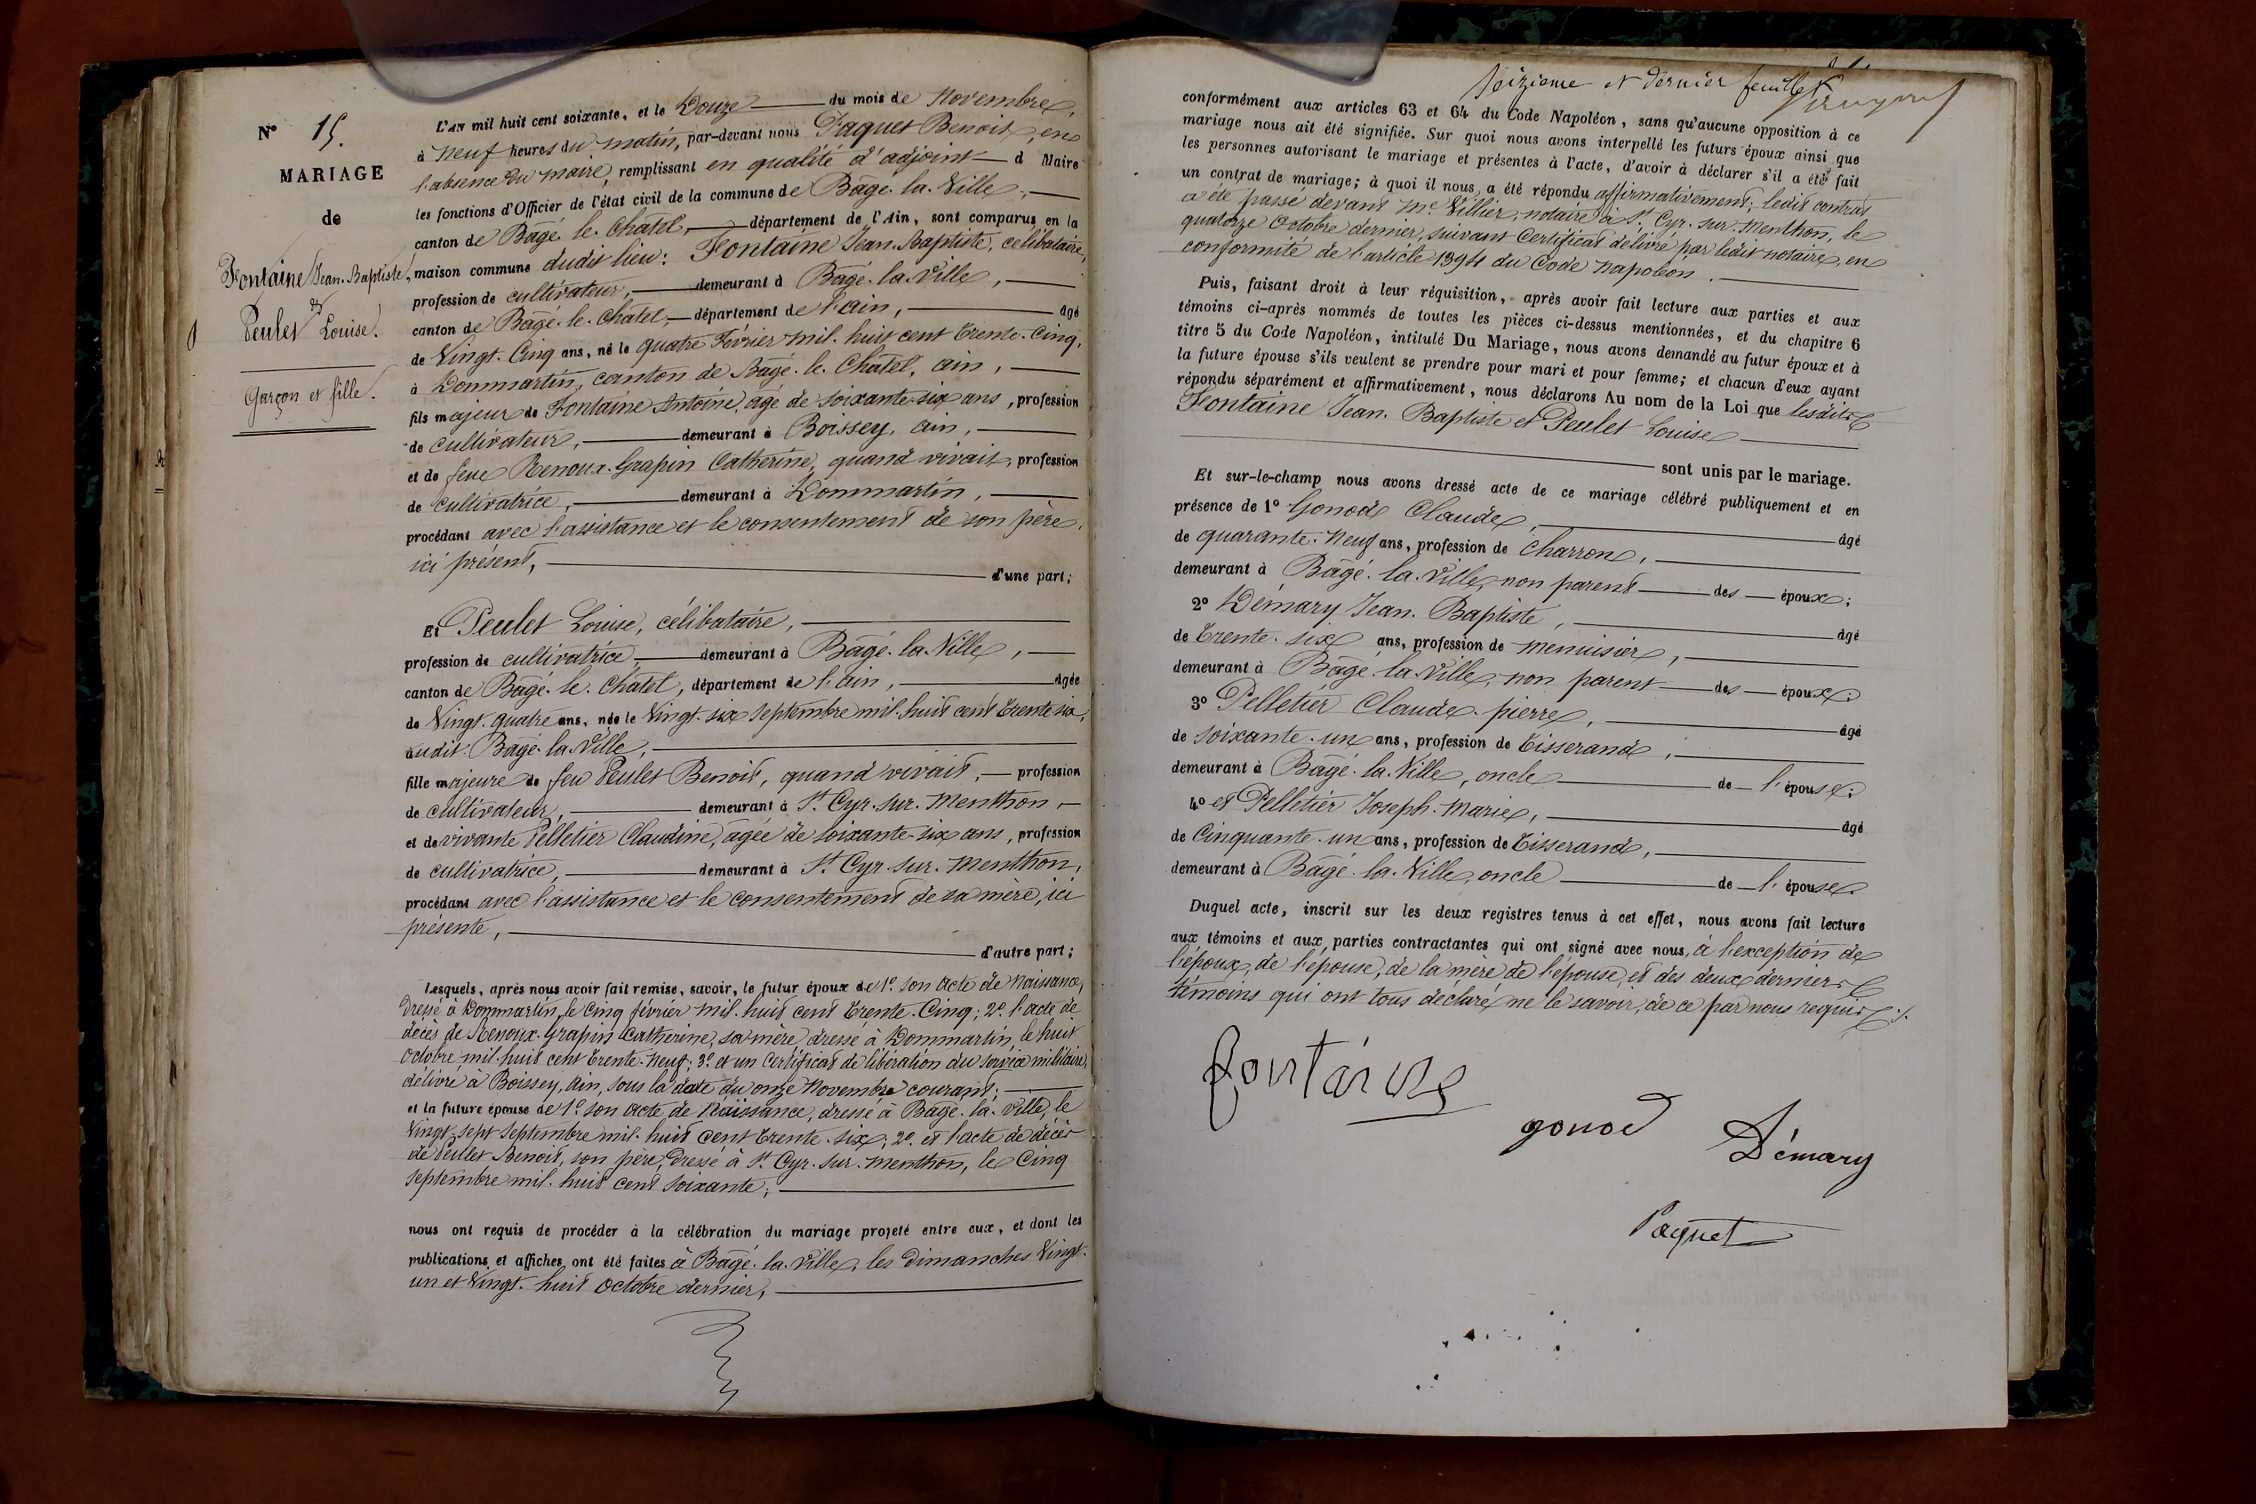 N° 15.
MARIAGE
de
Fontaine Jean-Baptiste,
et
Peulet Louise.
Garçon et fille.
L'AN mil huit cent soixante, et le Douze du mois de Novembre,
à neuf heures du matin, par-devant nous Paquet Benoit, en
l'absence du maire, remplissant en qualité d'adjoint d Maire
les fonctions d'Officier de l'état civil de la commune de Bâgé-la-Ville,
canton de Bâgé-le-Châtel, département de l'Ain, sont comparus en la
maison commune dudit lieu: Fontaine Jean-Baptiste, célibataire,
profession de cultivateur, demeurant à Bâgé-la-Ville,
canton de Bâgé-le-Châtel, département de l'ain, âgé
de Vingt-Cinq ans, né le quatre Février mil-huit cent trente-Cinq,
à Dommartin, canton de Bâgé-le-Châtel, ain,
fils majeur de Fontaine Antoine, âgé de soixante-six ans, profession
de cultivateur, demeurant à Boissey, ain,
et de feue Renoux-Grapin Catherine, quand vivait, profession
de cultivatrice, demeurant à Dommartin,
procédant avec l'assistance et le consentement de son père,
ici présent, d'une part;
Et Peulet Louise, célibataire,
profession de cultivatrice, demeurant à Bâgé-la-Ville,
canton de Bâgé-le-Châtel, département de l'ain, âgée
de Vingt-quatre ans, née le Vingt-six septembre mil-huit cent trente-six,
audit Bâgé-la-Ville,
fille majeure de feu Peulet Benoit, quand vivait, profession
de cultivateur, demeurant à St Cyr-sur-Menthon,
et de vivante Pelletier Claudine, âgée de soixante-six ans, profession
de cultivatrice, demeurant à St Cyr-sur-Menthon,
procédant avec l'assistance et le consentement de sa mère, ici
présente,
d'autre part;
Lesquels, après nous avoir fait remise, savoir, le futur époux de 1° son acte de Naissance,
dressé à Dommartin, le Cinq février mil-huit cent trente-Cinq; 2° l'acte de
décès de Renoux-Grapin Catherine, sa mère, dressé à Dommartin, le huit
Octobre mil-huit cent trente-Neuf; 3° et un Certificat de libération du service militaire,
délivré à Boissey, Ain, sous la date du onze Novembre courant;
et la future épouse de 1° son acte de Naissance, dressé à Bâgé-la-Ville, le
Vingt-sept septembre mil-huit cent trente-six; 2° et l'acte de décès
de Peulet Benoit, son père, dressé à St Cyr-sur-Menthon, le Cinq
septembre mil-huit cent soixante;
nous ont requis de procéder à la célébration du mariage projeté entre eux, et dont les
publications et affiches ont été faites à Bâgé-la-Ville, les dimanches Vingt-
un et Vingt-huit Octobre dernier,
seizieme et dernier feuillet
conformément aux articles 63 et 64 du Code Napoléon, sans qu'aucune opposition à ce
mariage nous ait été signifiée. Sur quoi nous avons interpellé les futurs époux ainsi que
les personnes autorisant le mariage et présentes à l'acte, d'avoir à déclarer s'il a été fait
un contrat de mariage; à quoi il nous a été répondu affirmativement; ledit contrat
a été passé devant Me Villier, notaire à St Cyr-sur-Menthon, le
quatorze Octobre dernier, suivant Certificat délivré par ledit notaire, en
conformité de l'article 1394 du Code Napoléon.
Puis, faisant droit à leur réquisition, après avoir fait lecture aux parties et aux
témoins ci-après nommés de toutes les pièces ci-dessus mentionnées, et du chapitre 6
titre 5 du Code Napoléon, intitulé Du Mariage, nous avons demandé au futur époux et à
la future épouse s'ils veulent se prendre pour mari et pour femme; et chacun d'eux ayant
répondu séparément et affirmativement, nous déclarons Au nom de la Loi que lesdits
Fontaine Jean-Baptiste et Peulet Louise
sont unis par le mariage.
Et sur-le-champ nous avons dressé acte de ce mariage célébré publiquement et en
présence de 1° Gonod Claude, âgé
de quarante-Neuf ans, profession de Charron,
demeurant à Bâgé-la-Ville, non parent des époux;
2° Démary Jean-Baptiste, âgé
de trente-six ans, profession de menuisier,
demeurant à Bâgé-la-Ville, non parent des époux;
3° Pelletier Claude-pierre, âgé
de soixante-un ans, profession de tisserand,
demeurant à Bâgé-la-Ville, oncle de l'épouse;
4° et Pelletier Joseph-Marie, âgé
de Cinquante-un ans, profession de tisserand,
demeurant à Bâgé-la-Ville, oncle de l'épouse.
Duquel acte, inscrit sur les deux registres tenus à cet effet, nous avons fait lecture
aux témoins et aux parties contractantes qui ont signé avec nous, à l'exception de
l'époux, de l'épouse, de la mère de l'épouse, et des deux derniers
témoins qui ont tous déclaré ne le savoir, de ce par nous requis ./.
fontaine
gonod
Démary
Paquet